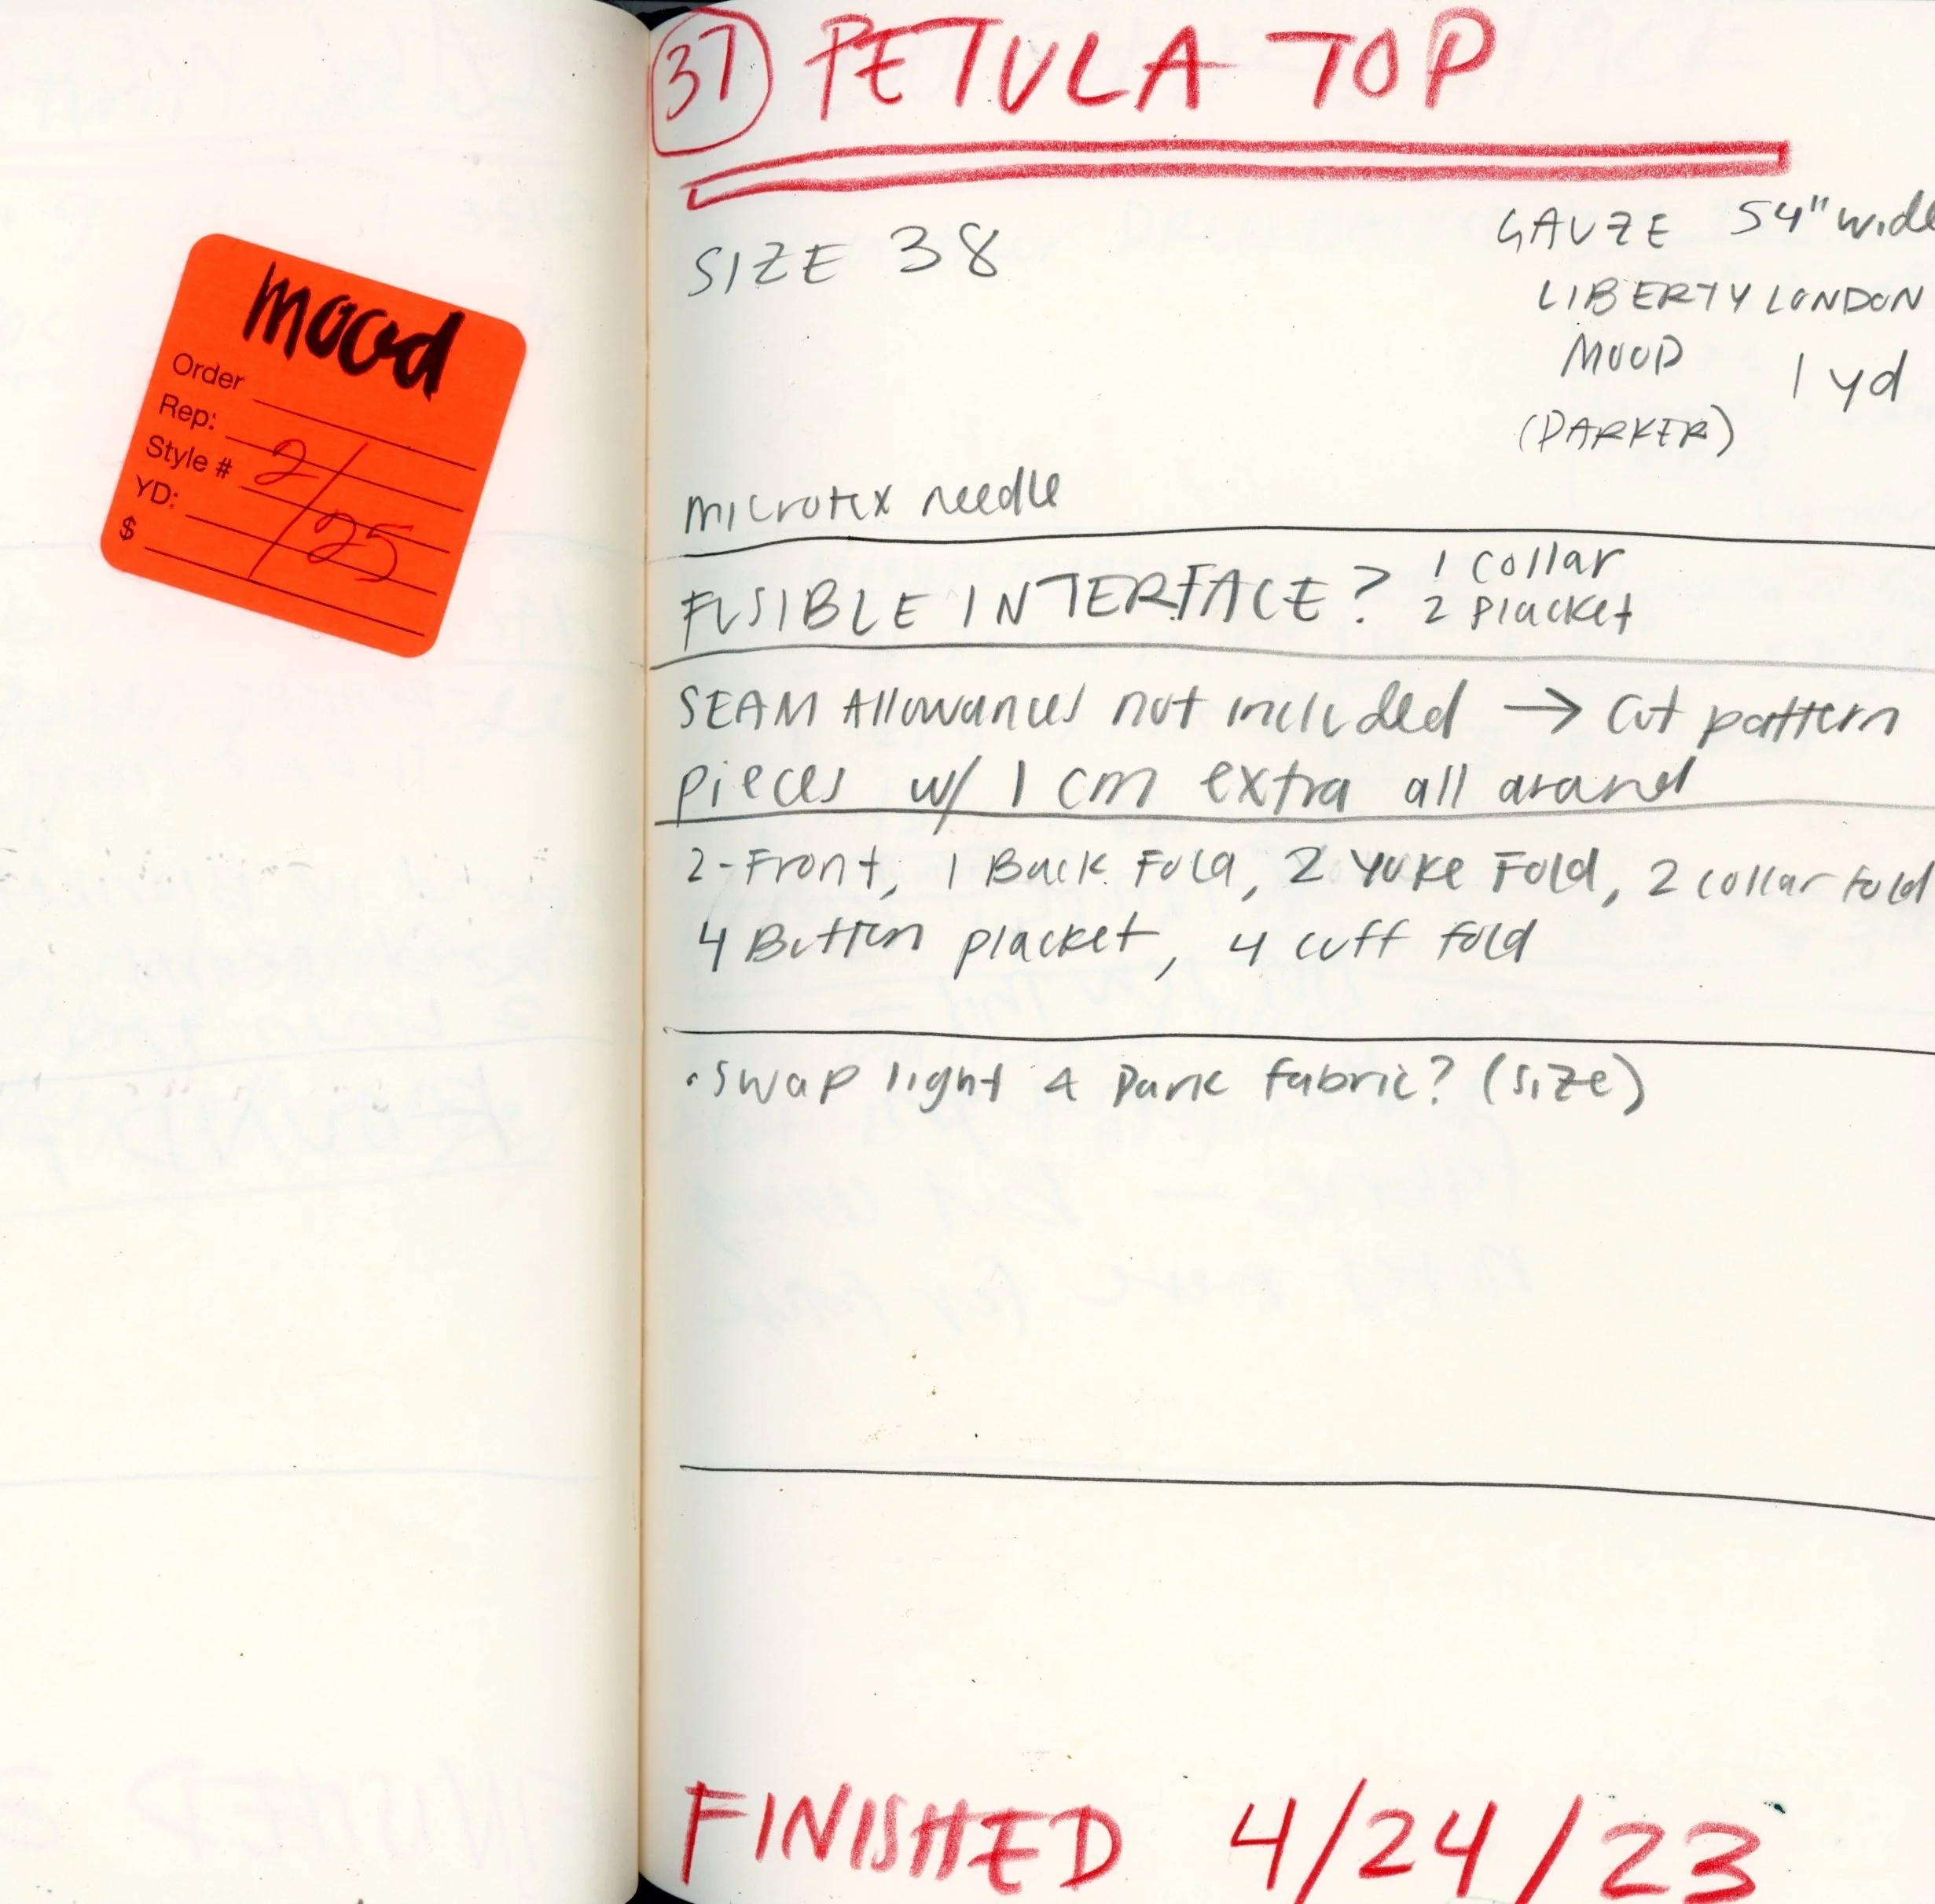 mood
Order
Rep:
Style # 2/25
YD:
$
37 PETULA TOP
SIZE 38
GAUZE 54" wide
LIBERTY LONDON
MOOD 1 yd
(PARKER)
microtex needle
FUSIBLE INTERFACE? 1 collar
2 placket
SEAM Allowances not included → cut pattern
pieces w/ 1 cm extra all around
2-Front, 1 Back Fold, 2 Yoke Fold, 2 collar fold
4 Button placket, 4 cuff fold
• Swap light & Dark fabric? (size)
FINISHED 4/24/23